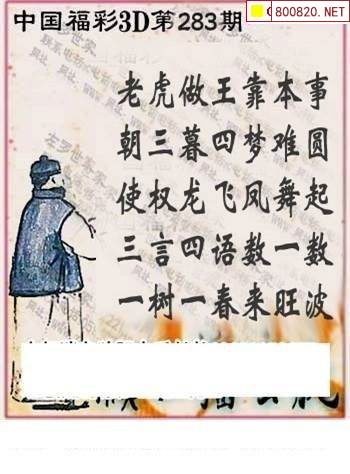 中国福彩3D第283期
800820.NET
老虎做王靠本事
朝三暮四梦难圆
使权龙飞凤舞起
三言四语数一数
一树一春来旺波